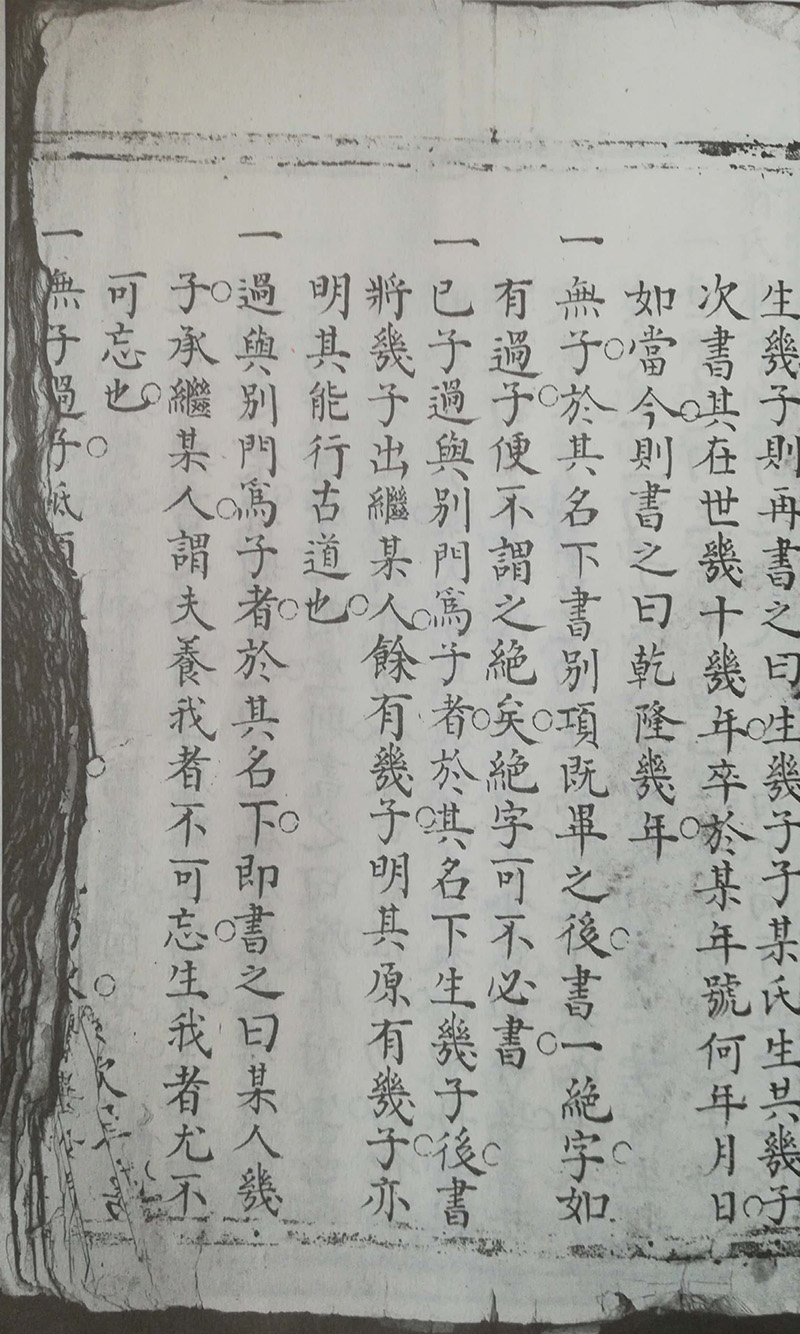 生幾子則再書之曰生幾子子某氏生共幾子
次書其在世幾十幾年○卒於某年號何年月日○
如當今○則書之曰乾隆幾年○
一無子○於其名下書別項既畢之後○書一絶字○如
有過子○便不謂之絶矣○絶字可不必書○
一已子過與別門爲子者○於其名下生幾子後○書
將幾子出繼某人○餘有幾子○明其原有幾子○亦
明其能行古道也○
一過與別門爲子者○於其名下○即書之曰某人幾
子○承繼某人○謂夫養我者不可忘○生我者尤不
可忘也○
一無子過子○